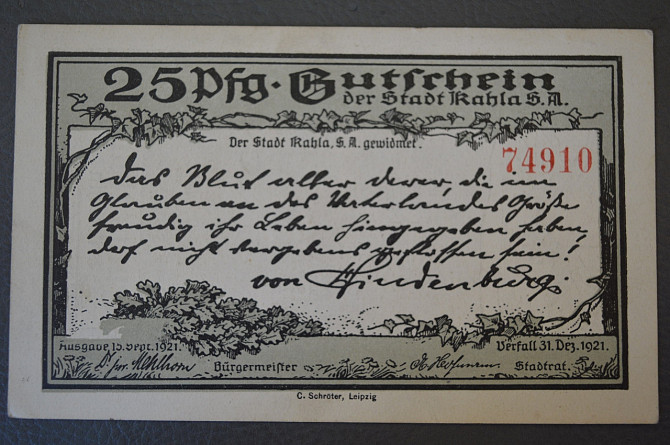 25 Pfg. Gutschein
der Stadt Kahla S.A.
Der Stadt Kahla, S.A. gewidmet.
74910
Das Blut aller derer, die im
Glauben an des Vaterlandes Größe
freudig ihr Leben hingegeben haben,
darf nicht vergebens geflossen sein!
von Hindenburg.
Ausgabe 15. Sept. 1921.
Verfall 31. Dez. 1921.
Bürgermeister
Stadtrat.
C. Schröter, Leipzig